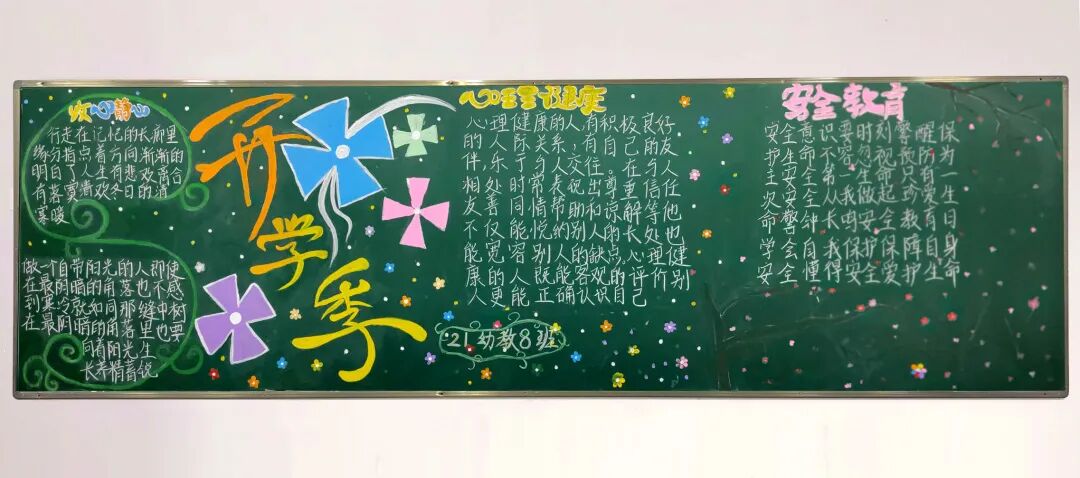 放心静心
行走在记忆的长廊里
缘分指点着方向渐渐的
明白了人生有悲欢离合
有落寞清欢冬日的消
寒暖
做一个自带阳光的人即使
在最阴暗的角落也不感
到寒冷就如同那缝中树
在最阴暗的角落里也要
向着阳光生
长养精蓄锐
开学季
心理健康
心理健康的人,有积极良好
的人际关系,有自己的友
伴,乐于与人交往。在与人
相处时常表现出尊重信任
友善同情帮助和谅解等他
不仅能悦纳别人的长处也
能宽容别人的缺点,心理健
康的人既能客观的评价别
人更能正确认识自己
21幼教8班
安全教育
安全意识要时刻警醒保
护生命不容忽视预防为
主安全第一生命只有一
次安全从我做起珍爱生
命警钟长鸣安全教育日
学会自我保护保障自身
安全懂得安全爱护生命